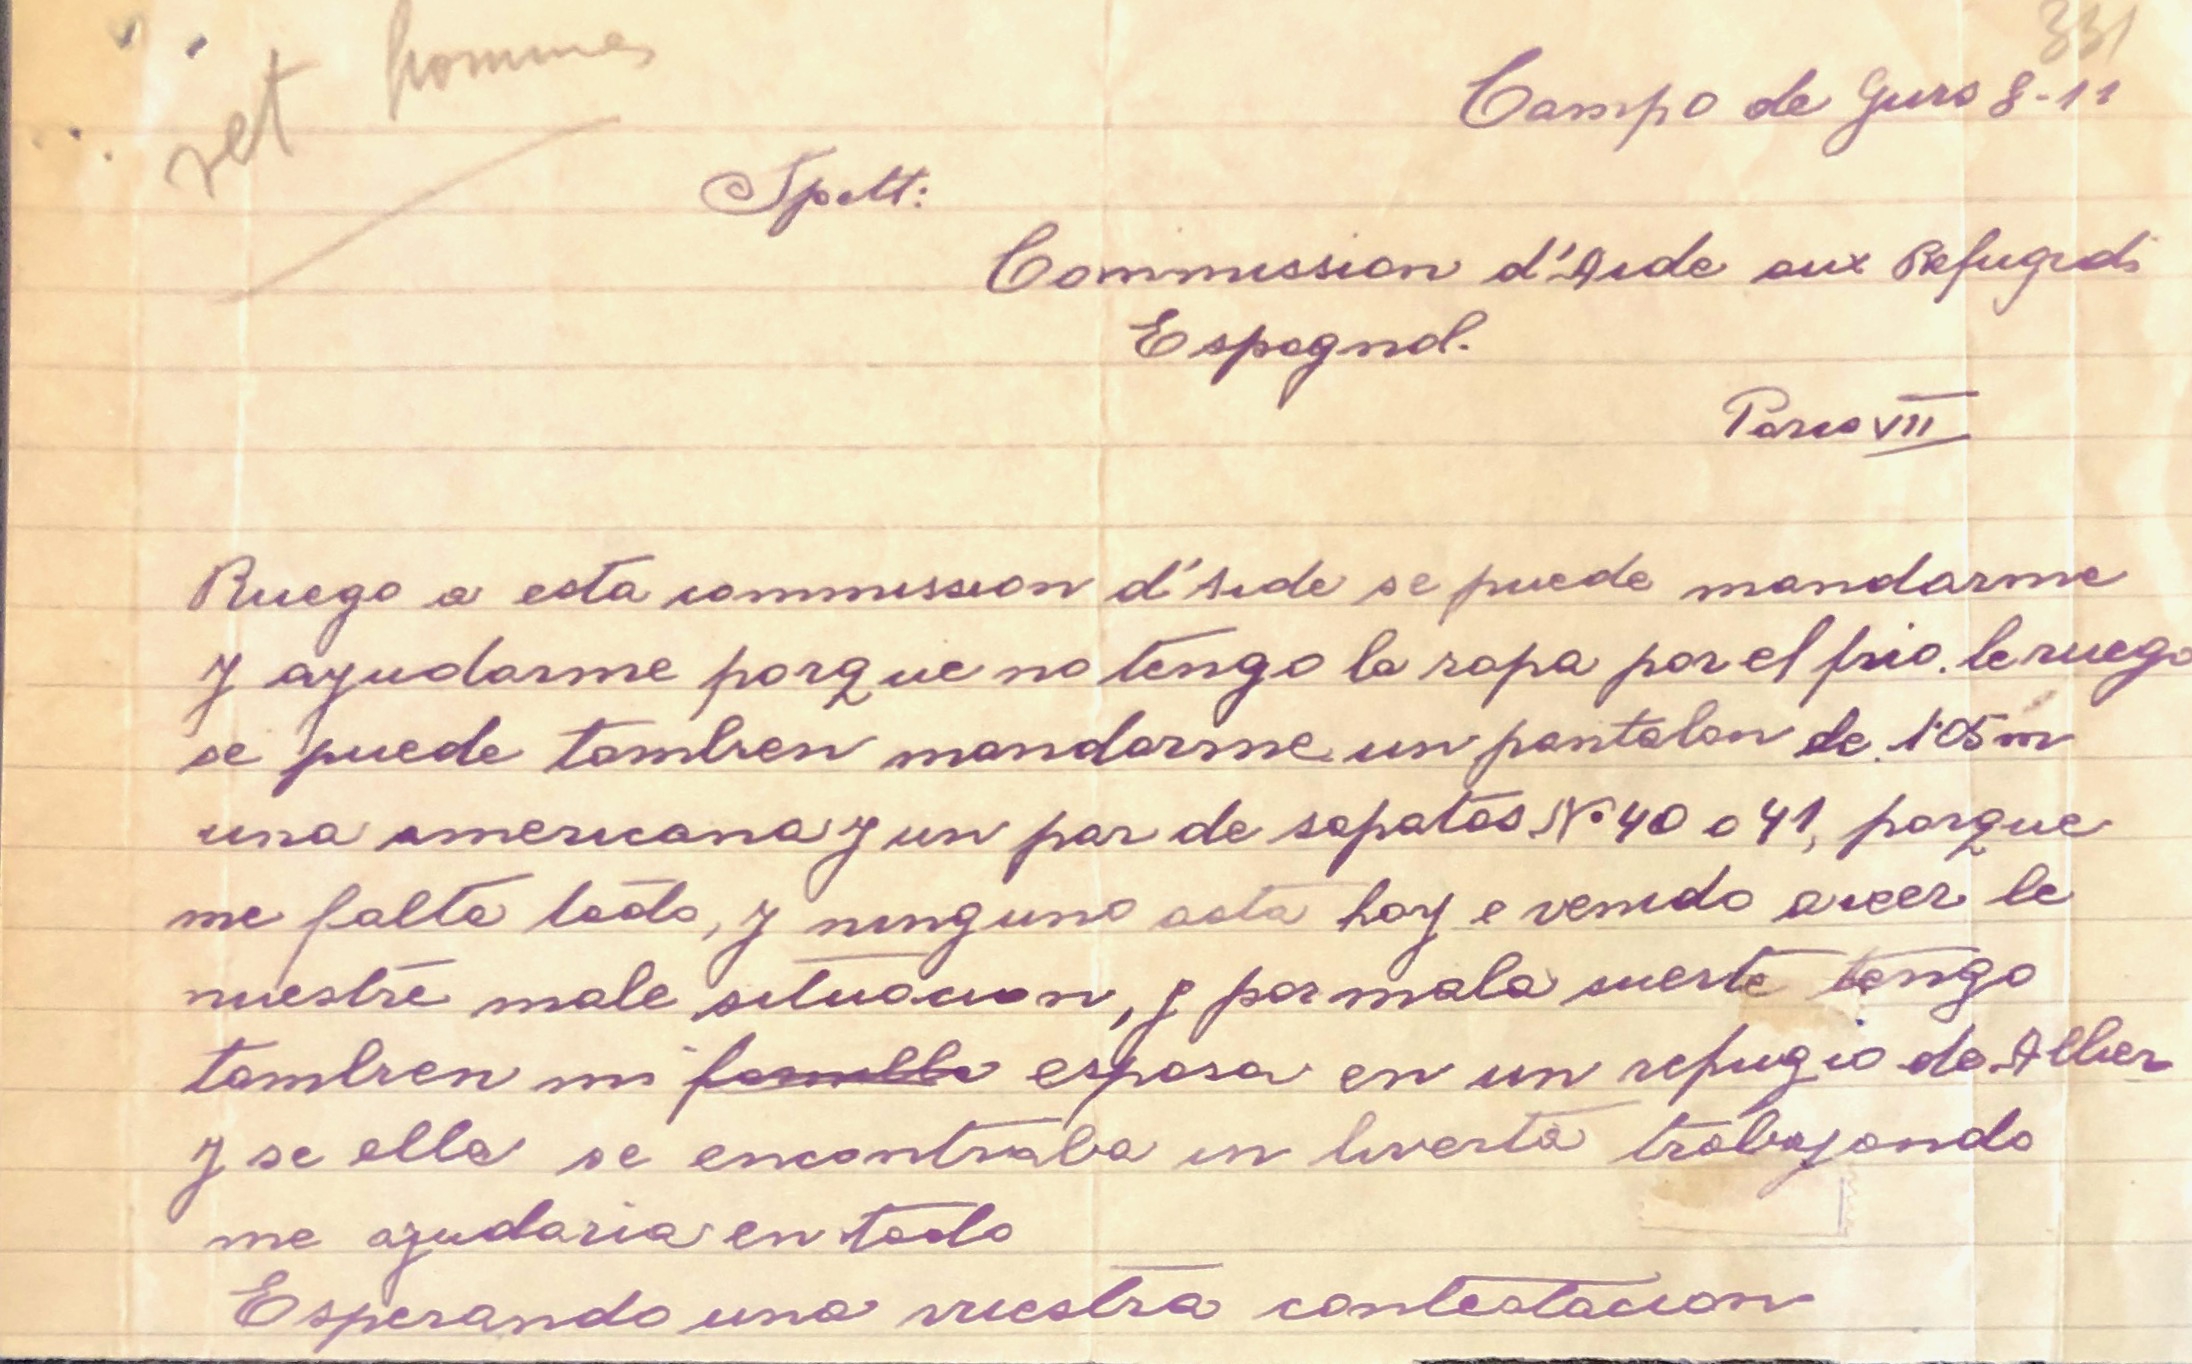 vet hommes
331
Campo de Gurs 8-11
Spett:
Commission d'Aide aux Refugieds
Espagnol.
Paris VII
Ruego a esta commission d'Aide se puede mandarme
y ayudarme porque no tengo la ropa por el frio. le ruego
se puede tambien mandarme un pantalon de 1'05 m
una americana y un par de sapatos Nº 40 o 41, porque
me falta todo, y ninguno asta hoy e venido a veer le
nuestre male situacion, y por mala suerte tengo
tambien mi familla esposa en un refugio de Allier
y se ella se encontraba in liverta trabajando
me ajudaria en todo
Esperando una vuestra contestacion